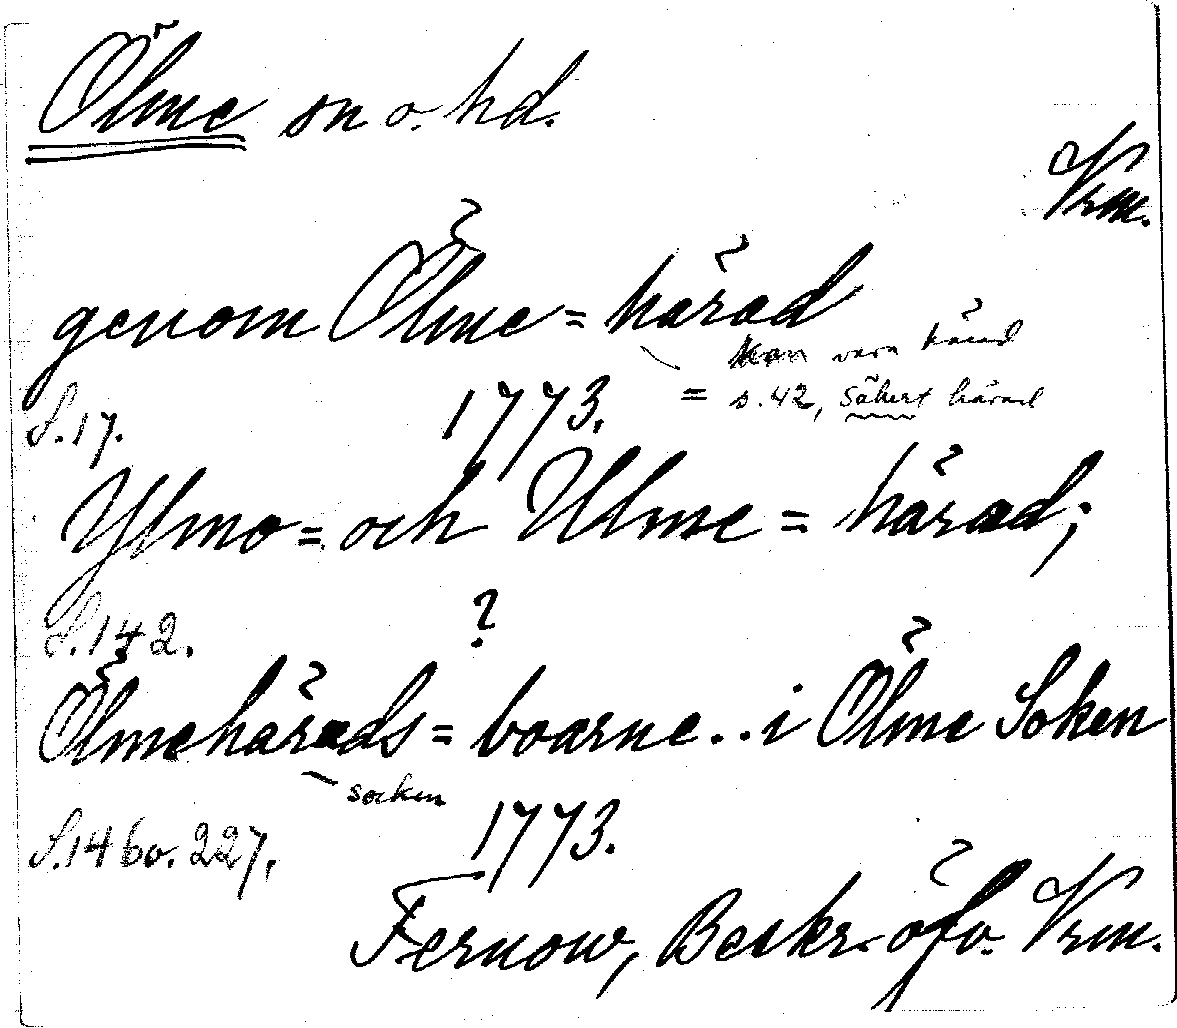 Ölme sn o. hd.
Vrm.
genom Ölme=härad
kan vara härad
= s.42, säkert härad
S.17. 1773.
Ylmo=och Ulme=härad;
S.142. ?
Ölmehärads=boarne..i Ölme Soken
socken
S.146o.227. 1773.
Fernow, Beskr. öfv. Vrm.